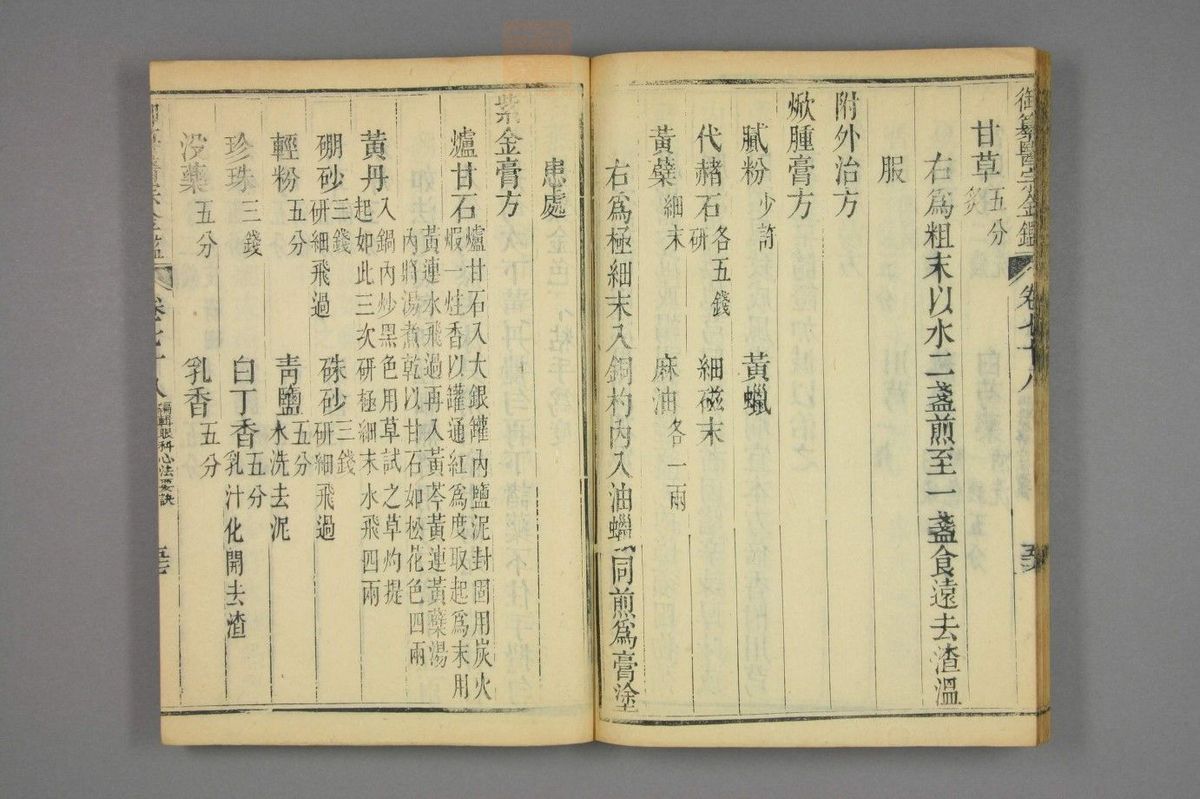 御纂醫宗金鑑 卷七十八
甘草五分炙
右爲粗末以水二盞煎至一盞食遠去渣溫
服
附外治方
焮腫膏方
膩粉少許 黃蠟
代赭石各五錢研 細磁末
黃蘗細末 麻油各一兩
右爲極細末入銅杓內入油蠟同煎爲膏塗
患處
紫金膏方
爐甘石爐甘石入大銀罐內鹽泥封固用炭火
煅一炷香以罐通紅爲度取起爲末用
黃連水飛過再入黃芩黃連黃蘗湯
內將湯煮乾以甘石如松花色四兩
黃丹入鍋內炒黑色用草試之草灼提
起如此三次研極細末水飛四兩
硼砂三錢研細飛過 硃砂三錢研細飛過
輕粉五分 青鹽五分水洗去泥
珍珠三錢 白丁香五分乳汁化開去渣
沒藥五分 乳香五分
卷七十八 編輯眼科心法要訣